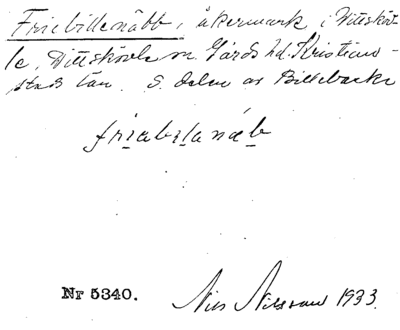 Friebillenäbb, åkermark i Vittsköv-
le, Vittskövle sn Gärds hd. Kristian-
stads län. S. delen av Billebacke
friabilanäb
Nr 5340. Nils Nilsson 1933.